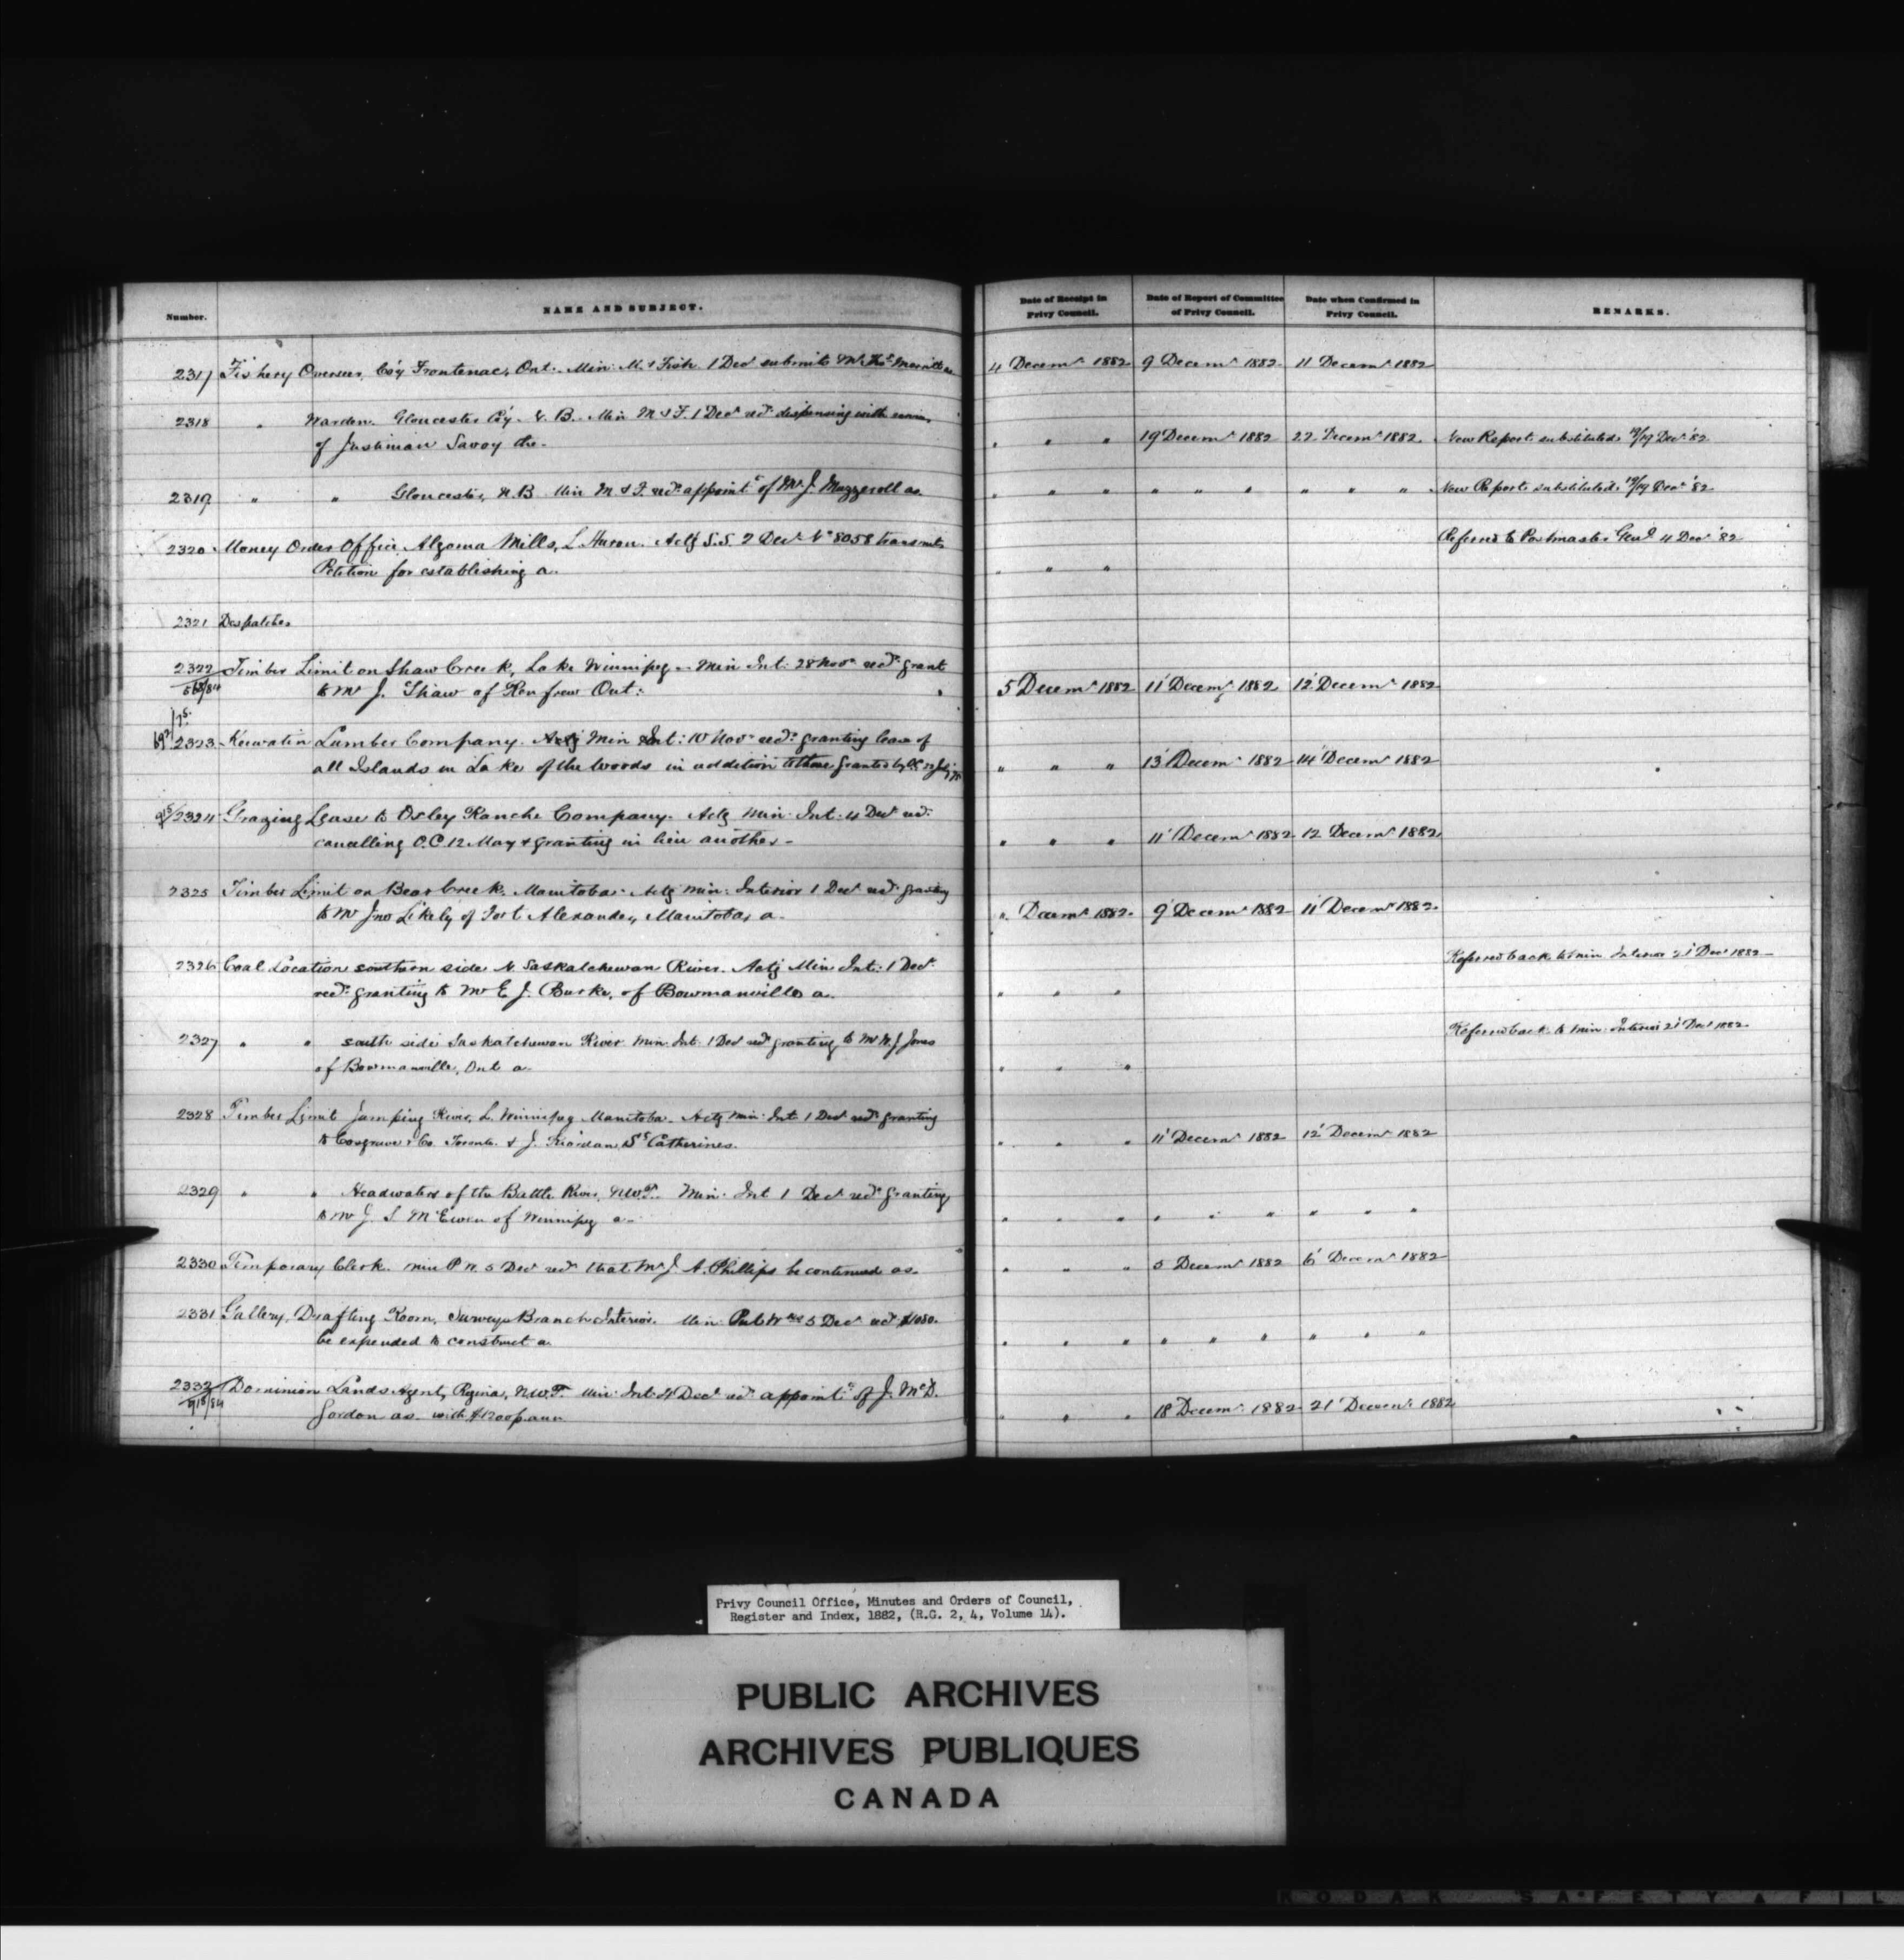 Number.
NAME AND SUBJECT.
Date of Receipt in Privy Council.
Date of Report of Committee of Privy Council.
Date when Confirmed in Privy Council.
REMARKS.
2317 Fishery Overseer, Co'y Frontenac, Ont: Min: M. & Fish. 1 Decr submits Mr Thos Merrill as 4 Decemr 1882 9 Decemr 1882 11 Decemr 1882
2318 " Warden. Gloucester Co'y. N. B. Min M & F. 1 Decr recds dispensing with
of Justinian Savoy the. " " " 19 Decemr 1882 22 Decemr 1882 New Report substituted 19 Decr '82
2319 " " Gloucester, N.B. Min M & F. recds appointt of Mr J. Muzzeroll as. " " " " " " " " " New Report substituted Decr '82
2320 Money Order Office, Algoma Mills, L. Huron. Actg S.S. 2 Decr No 8058 transmits Referred to Postmaster Genl 4 Decr '82
Petition for establishing a. " " "
2321 Despatches
2322 Timber Limit on Shaw Creek, Lake Winnipeg - Min Int: 28 Novr recds grant
to Mr J. Shaw of Renfrew Ont: 5 Decemr 1882 11 Decemr 1882 12 Decemr 1882
2323 Keewatin Lumber Company. Actg Min Int: 10 Novr recds granting lease of
all Islands in Lake of the Woods in addition to those granted by O.C. " " " 13 Decemr 1882 14 Decemr 1882
2324 Grazing Lease to Oxley Ranche Company. Actg Min. Int. 4 Decr recds
cancelling O.C. 12 May & granting in lieu another - " " " 11 Decemr 1882 12 Decemr 1882
2325 Timber Limit on Bear Creek, Manitoba. Actg Min: Interior 1 Decr recds granting
to Mr Jno Likely of Fort Alexander, Manitoba, a. " Decemr 1882. 9 Decemr 1882 11 Decemr 1882.
2326 Coal Location southern side N. Saskatchewan River. Actg Min Int: 1 Decr Referred back to Min Interior 21 Decr 1882
recds granting to Mr E. J. Burke, of Bowmanville a. " " "
2327 " " south side Saskatchewan River Min. Int. 1 Decr recds granting to Mr N. J. Jones Referred back to Min. Interior 21 Decr 1882
of Bowmanville, Ont a. " " "
2328 Timber Limit Jumping River, L. Winnipeg Manitoba. Actg Min. Int. 1 Decr recds granting
to Cosgrave & Co. Toronto & J. Riordan, St Catherines. " " " 11 Decemr 1882 12 Decemr 1882
2329 " " Headwaters of the Battle River, N.W.T. Min. Int 1 Decr recds granting
to Mr J. S. McEwen of Winnipeg a. " " " " " " " " "
2330 Temporary Clerk. Min P. W. 5 Decr recds that Mr J. A. Phillips be continued as. " " " 5 Decemr 1882 6 Decemr 1882
2331 Gallery, Drafting Room, Surveys Branch Interior. Min Pub Wks 5 Decr recds $1080.
be expended to construct a " " " " " " " " "
2332 Dominion Lands Agent, Regina, N.W.T. Min. Int. 4 Decr recds appointt of J. McD.
Gordon as. with $1200 p. ann " " " 18 Decemr 1882 21 Decemr 1882
Privy Council Office, Minutes and Orders of Council,
Register and Index, 1882, (R.G. 2, 4, Volume 14).
PUBLIC ARCHIVES
ARCHIVES PUBLIQUES
CANADA
KODAK SAFETY FIL